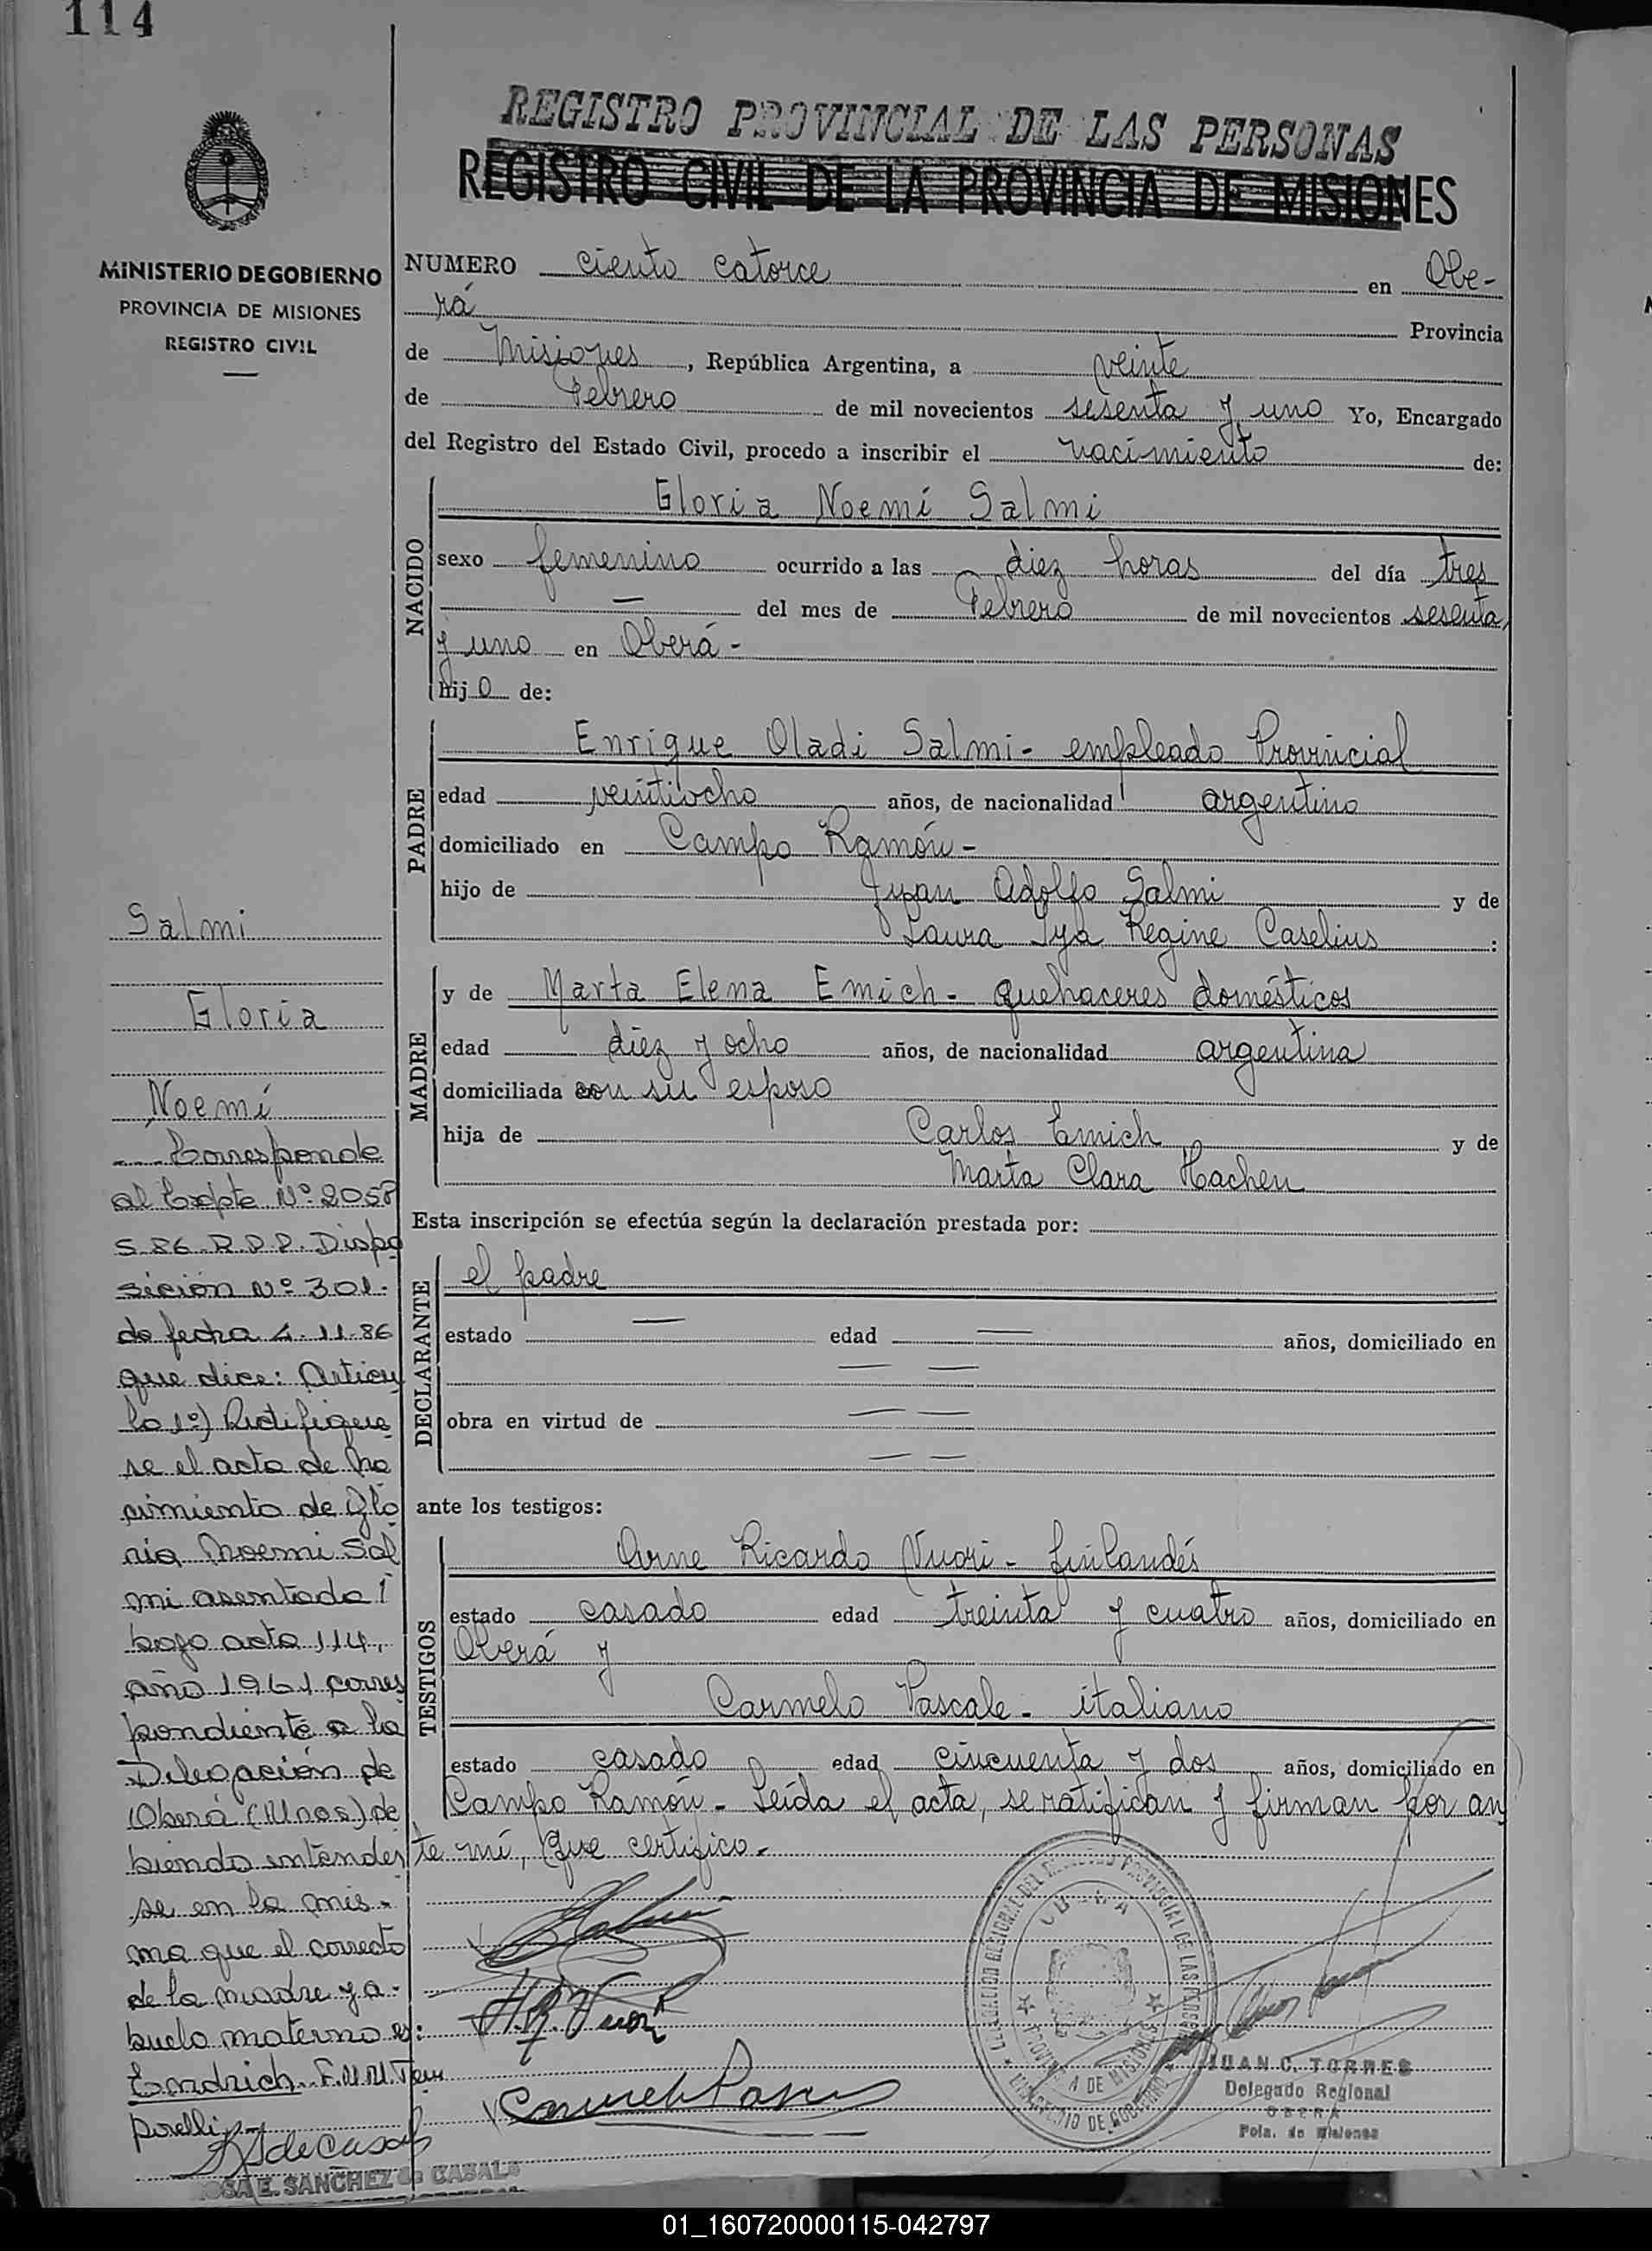 114
REGISTRO PROVINCIAL DE LAS PERSONAS
REGISTRO CIVIL DE LA PROVINCIA DE MISIONES
MINISTERIO DE GOBIERNO
PROVINCIA DE MISIONES
REGISTRO CIVIL
NUMERO ciento catorce en Obe-
rá Provincia
de Misiones, República Argentina, a veinte
de Febrero de mil novecientos sesenta y uno Yo, Encargado
del Registro del Estado Civil, procedo a inscribir el nacimiento de:
NACIDO
Gloria Noemí Salmi
sexo femenino ocurrido a las diez horas del día tres
— del mes de Febrero de mil novecientos sesenta
y uno en Oberá -
hijo de:
PADRE
Enrique Oladi Salmi - empleado Provincial
edad veintiocho años, de nacionalidad argentino
domiciliado en Campo Ramón -
hijo de Juan Adolfo Salmi y de
Laura Regine Caselius :
MADRE
y de Marta Elena Emich - quehaceres domésticos
edad diez y ocho años, de nacionalidad argentina
domiciliada con su esposo
hija de Carlos Emich y de
Marta Clara Hachen
Esta inscripción se efectúa según la declaración prestada por:
DECLARANTE
el padre
estado — edad — años, domiciliado en
— —
obra en virtud de — —
— —
ante los testigos:
TESTIGOS
Arne Ricardo Vuori - finlandés
estado casado edad treinta y cuatro años, domiciliado en
Oberá y
Carmelo Pascale - italiano
estado casado edad cincuenta y dos años, domiciliado en
Campo Ramón - Leída el acta, se ratifican y firman por an
te mí, que certifico.-
Salmi
Gloria
Noemí
Corresponde
al Expte Nº 2058
S-86 R.P.P. Dispo
sición Nº 301-
de fecha 4-11-86
que dice: Articu
lo 1º) Rectifique
se el acta de na
cimiento de Glo
ria Noemi Sal
mi asentada
bajo acta 114,
año 1961 corres
pondiente a la
Delegación de
Oberá (Mnes.) de
biendo entender
se en la mis-
ma que el correcto
de la madre y a-
buelo materno es:
Emdrich
JUAN C. TORRES
Delegado Regional
OBERA
Pcia. de Misiones
ROSA E. SANCHEZ de CASALS
01_160720000115-042797